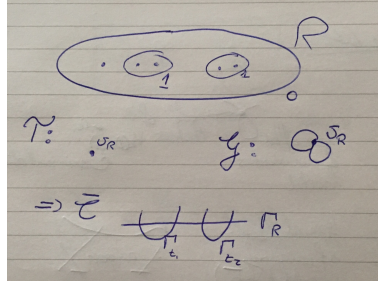 R
1 2
0
T: υ_R G: υ_R
=> C̄ Γ_R
Γ_t₁ Γ_t₂